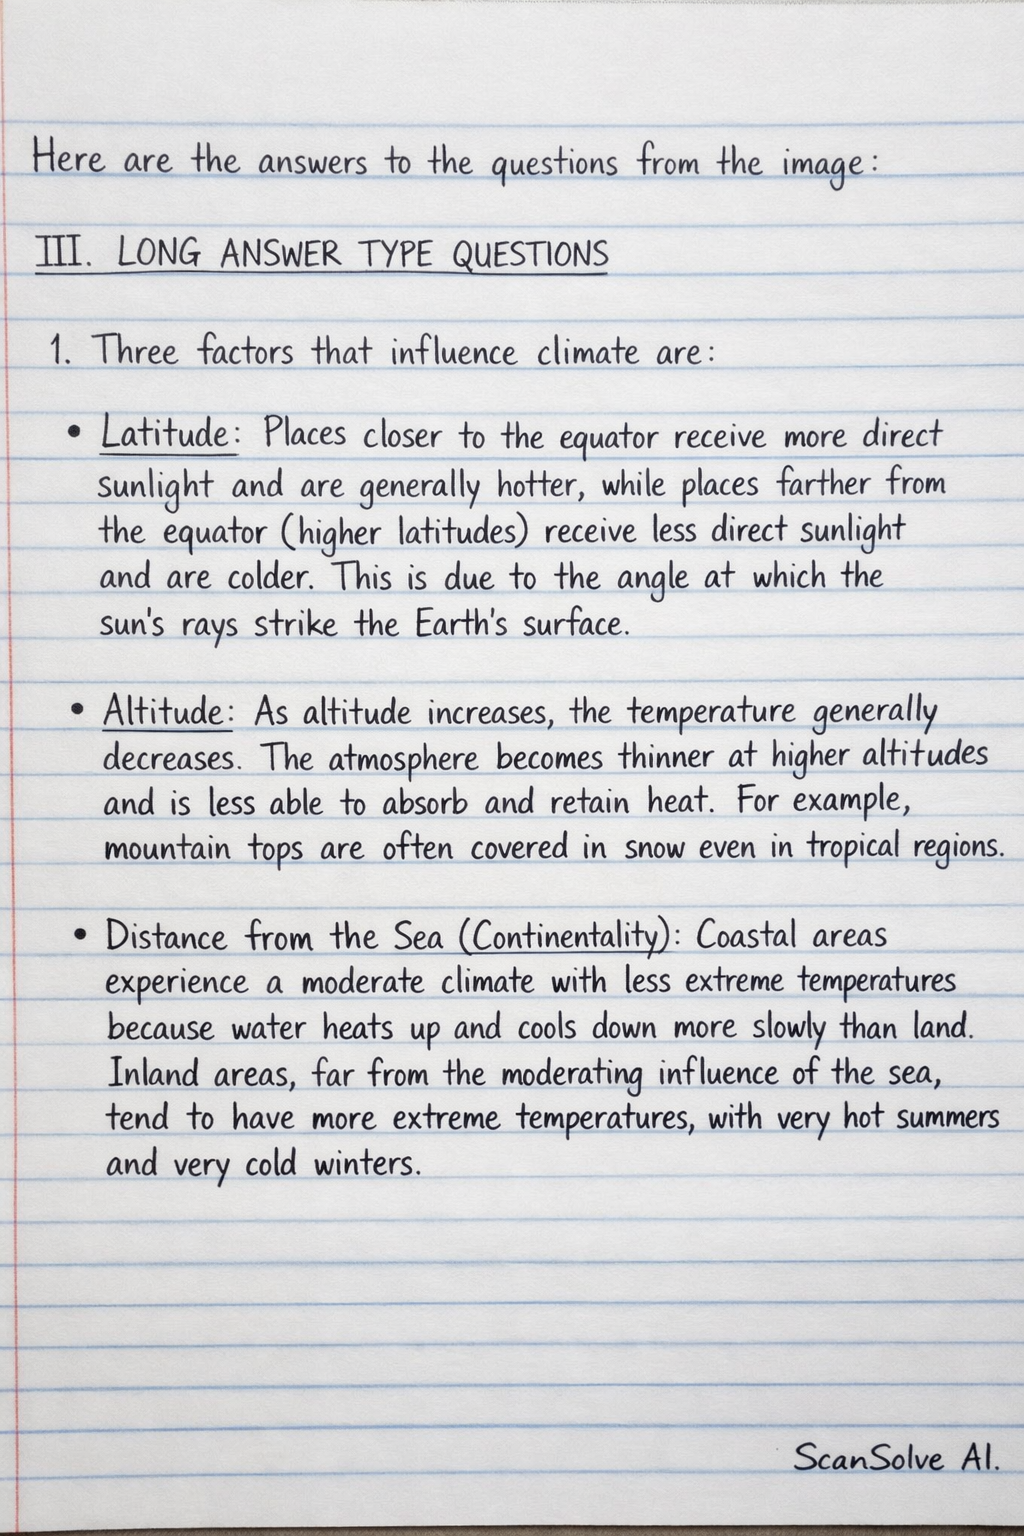 Here are the answers to the questions from the image:
III. LONG ANSWER TYPE QUESTIONS
1. Three factors that influence climate are:
• Latitude: Places closer to the equator receive more direct
sunlight and are generally hotter, while places farther from
the equator (higher latitudes) receive less direct sunlight
and are colder. This is due to the angle at which the
sun's rays strike the Earth's surface.
• Altitude: As altitude increases, the temperature generally
decreases. The atmosphere becomes thinner at higher altitudes
and is less able to absorb and retain heat. For example,
mountain tops are often covered in snow even in tropical regions.
• Distance from the Sea (Continentality): Coastal areas
experience a moderate climate with less extreme temperatures
because water heats up and cools down more slowly than land.
Inland areas, far from the moderating influence of the sea,
tend to have more extreme temperatures, with very hot summers
and very cold winters.
ScanSolve AI.